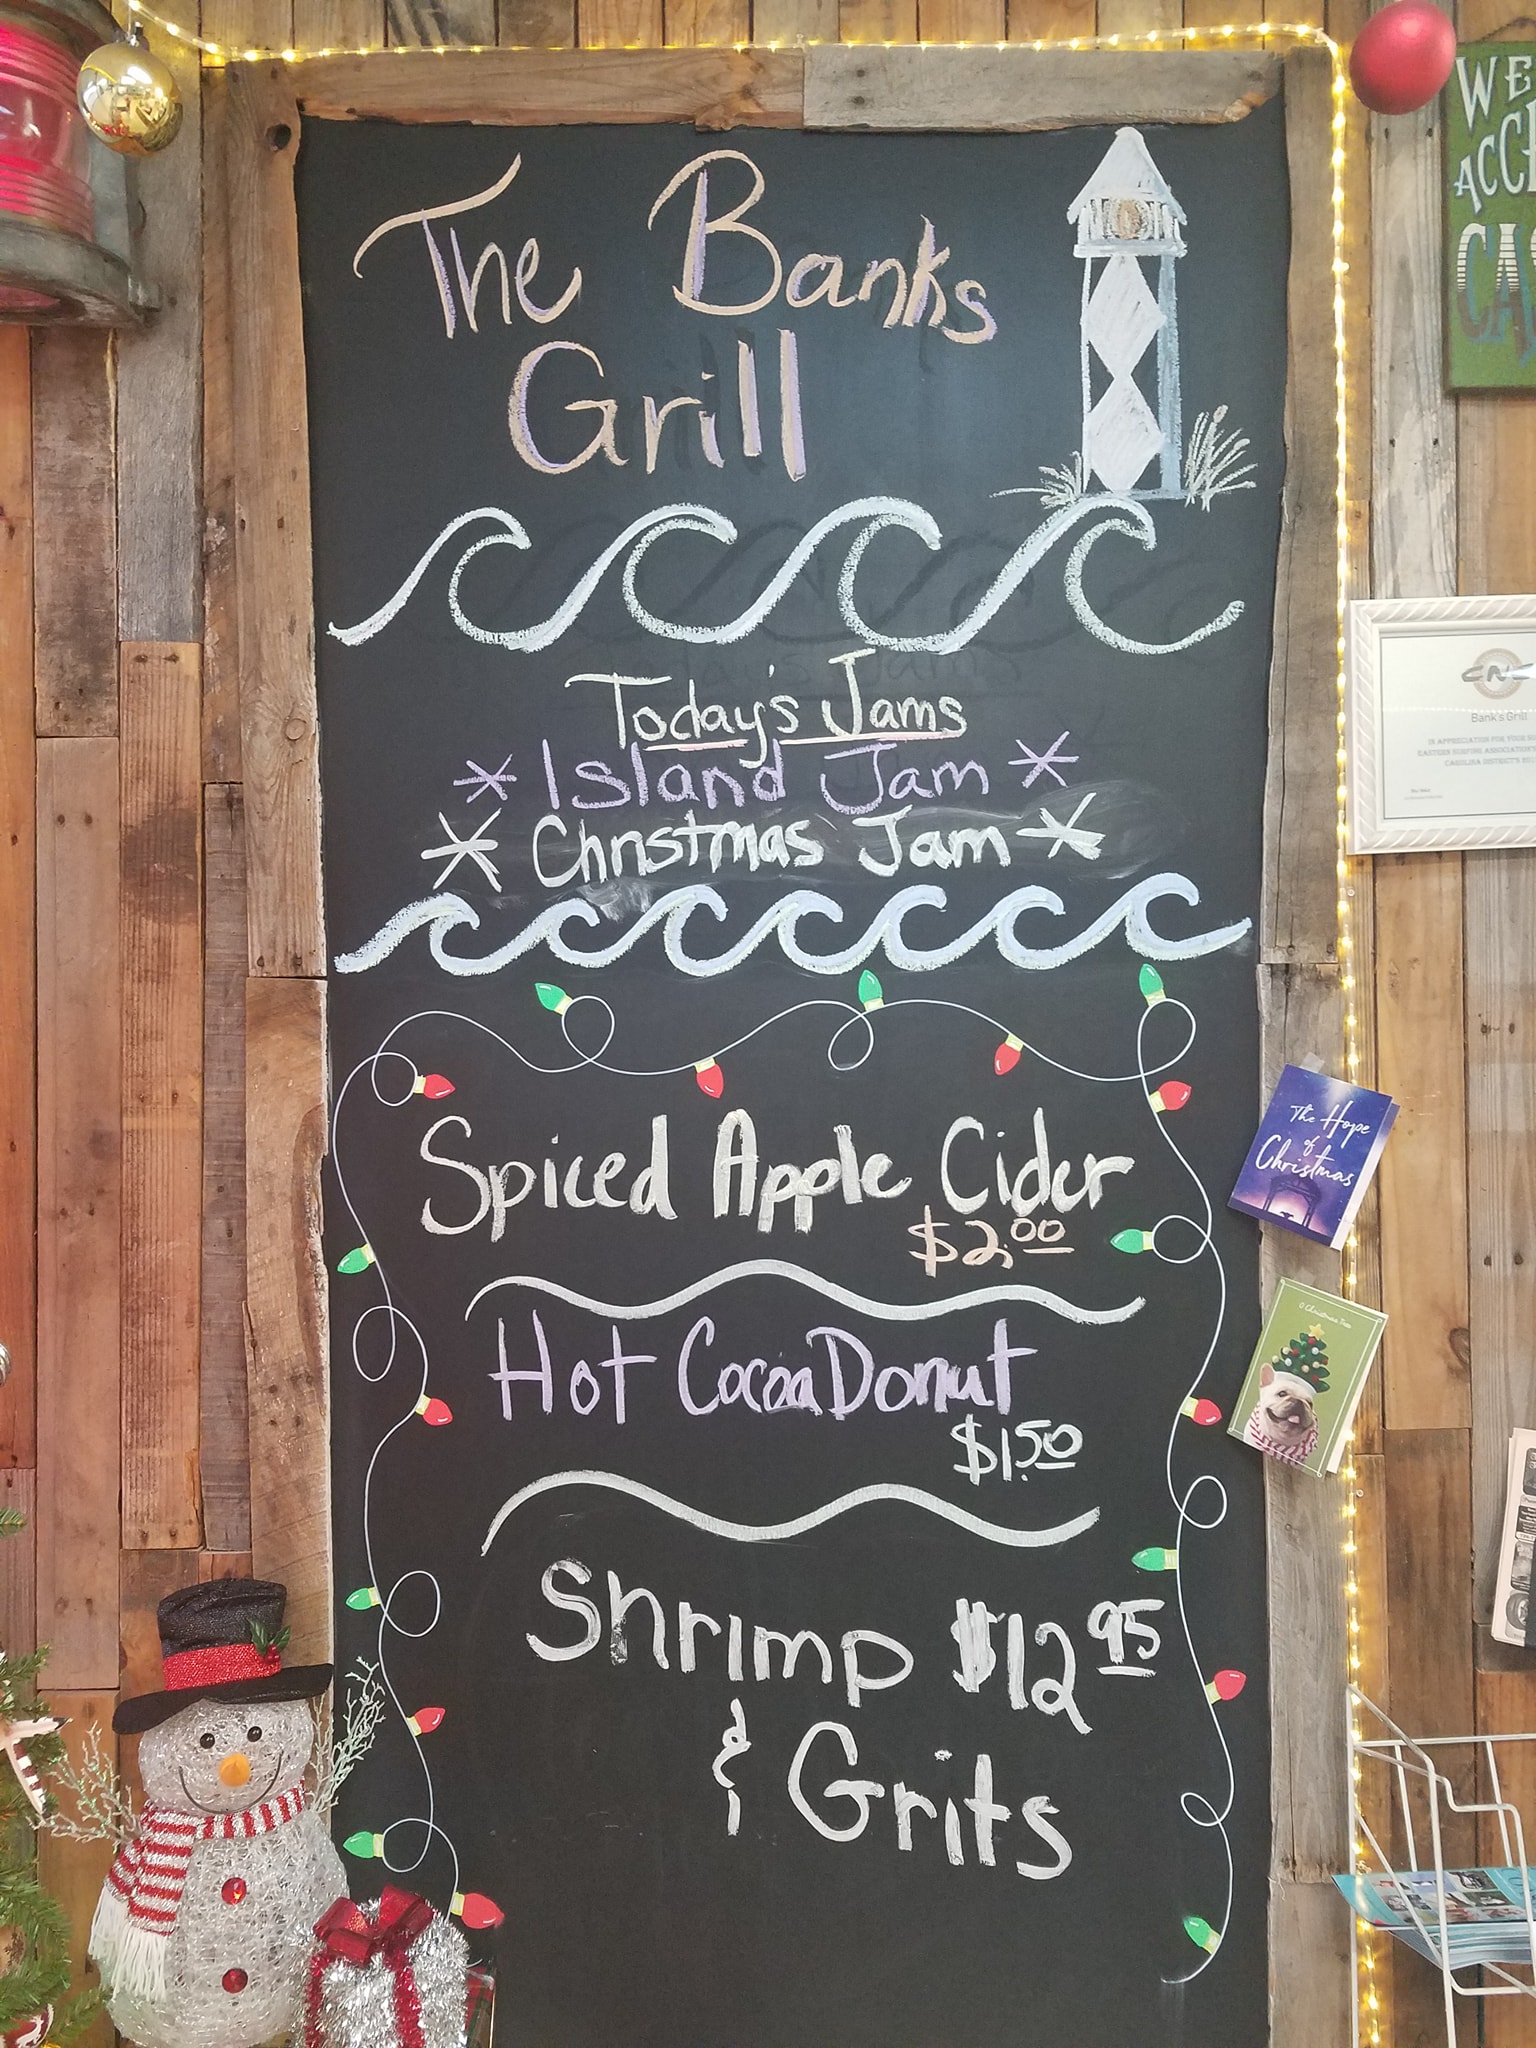 The Banks
Grill
Today's Jams
* Island Jam *
* Christmas Jam *
Spiced Apple Cider
$2.00
Hot Cocoa Donut
$1.50
Shrimp $12 95
& Grits
WE
ACCE
CAS
Bank's Grill
The Hope
of
Christmas
O Christmas Tree